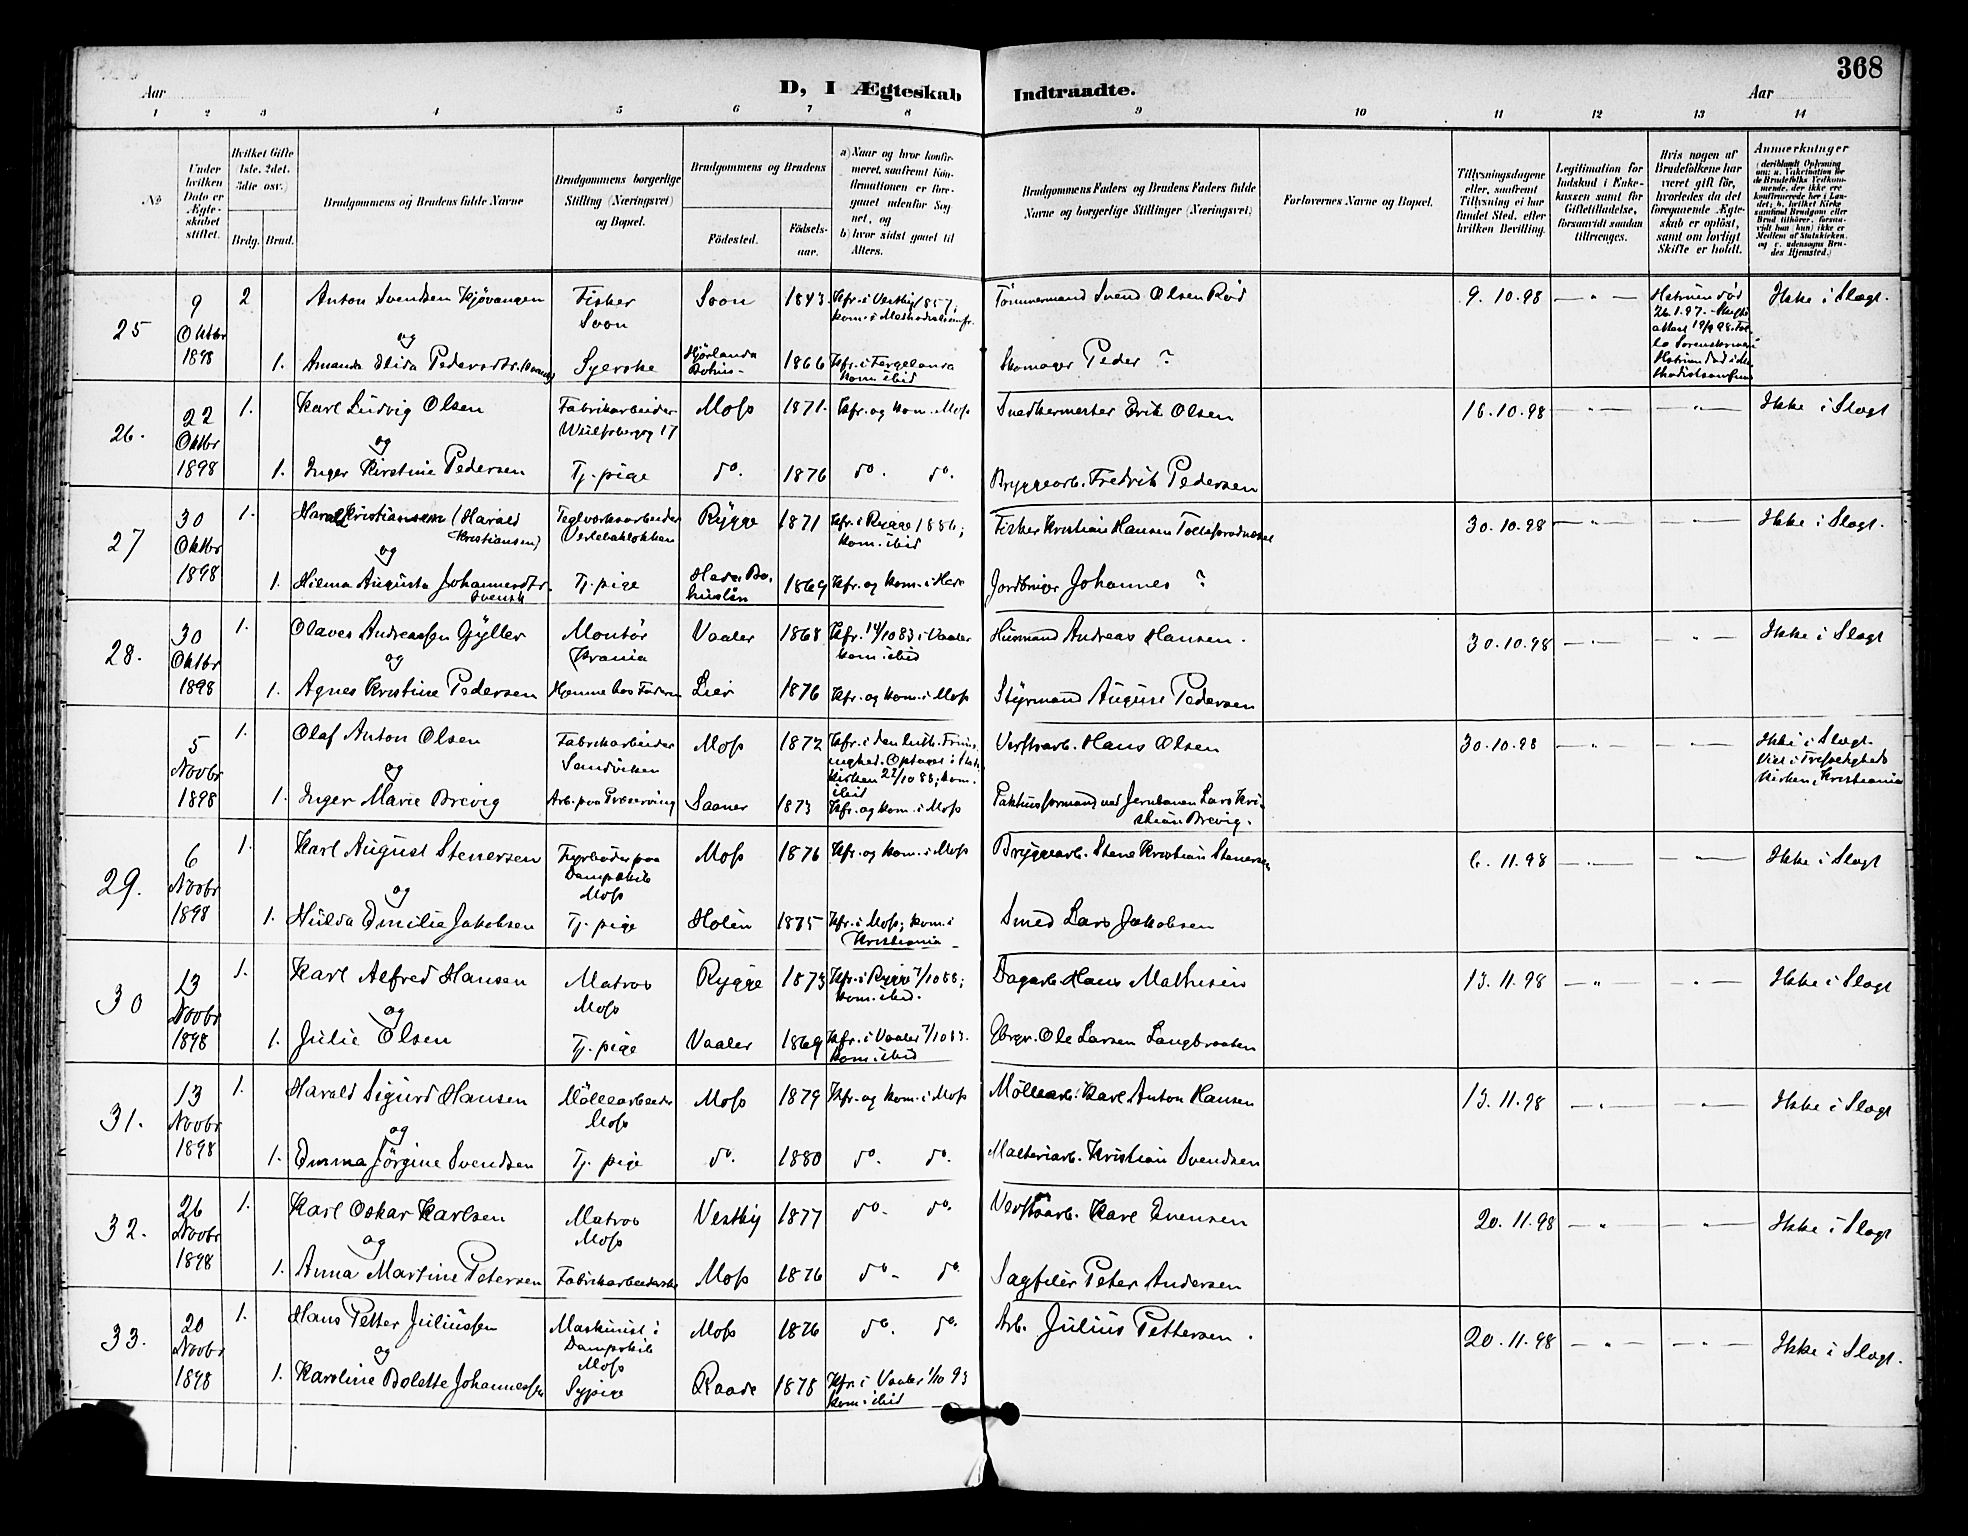 368
D, I Ægteskab Indtraadte.
Aar
Aar
1 2 3 4 5 6 7 8 9 10 11 12 13 14
No
Under hvilken Dato er Ægteskabet stiftet.
Hvilket Gifte 1ste, 2det, 3die osv.)
Brdg. Brud.
Brudgommens og Brudens fulde Navne
Brudgommens borgerlige Stilling (Næringsvei) og Bopæl.
Brudgommens og Brudens
Fødested.
Fødselsaar.
a) Naar og hvor konfirmeret, samt om Konfirmationen er foregaaet udenfor Sognet, og
b) hvor sidst gaaet til Alters.
Brudgommens Faders og Brudens Faders fulde Navne og borgerlige Stillinger (Næringsvei)
Forlovernes Navne og Bopæl.
Tillysningsdagene eller, saafremt Tillysning ei har fundet Sted, efter hvilken Bevilling.
Legitimation for Indskud i Enkekassen samt for Giftetilladelse, forsaavidt saadan tiltrænges.
Hvis nogen af Brudefolkene har været gift før, hvorledes da det foregaaende Ægteskab er opløst, samt om lovligt Skifte er holdt.
Anmærkninger
25 9 Oktbr 1898 2 Anton Svendsen Kjøvangen Fisker Soon Soon 1843 Kfr. i Vestby 1857; Tømmermand Svend Olsen Rød 9.10.98 — " — Ikke i Slægt.
og
1. Amanda Elida Pedersdtr. Syerske 1866 Kfr. i Fergelanda kom. ibid Skomager Peder ?
26. 22 Oktbr 1898 1. Karl Ludvig Olsen Fabrikarbeider Moss 1871. Kfr. og kom. Moss Snedkermester Erik Olsen 16.10.98 — " — — " — Ikke i Slægt
og
1. Inger Kirstine Pedersen Tj. pige do. 1876 do. do. Bryggearb. Fredrik Pedersen
27 30 Oktbr 1898 1. Harald Kristiansen (Harald Kristiansen) Teglverksarbeider Rygge 1871 Kfr. i Rygge 1886; kom. ibid Fisker Kristian Hansen 30.10.98 — " — — " — Ikke i Slægt.
og
1. Hilma Augusta Johannesdtr. Svensk Tj. pige 1869 Kfr. og kom. i Jordbruger Johannes ?
28. 30 Oktbr 1898 1. Olaves Andreassen Gyller Montør Krania Vaaler 1868 Kfr. 14/10 83 i Vaaler kom. ibid Husmand Andreas Hansen. 30.10.98 — " — — " — Ikke i Slægt
og
1. Agnes Kristine Pedersen Hjemme hos Faderen Lier 1876 Kfr. og kom. i Moss Styrmand August Pedersen
5 Novbr 1898 1. Olaf Anton Olsen Fabrikarbeider Sandviken Moss 1872 Kfr. i den luth. Frimenighed. Optaget i Statskirken 22/10 88; kom. ibid Verftsarb. Hans Olsen 30.10.98 — " — — " — Ikke i Slægt. Viet i Trefoldigheds Kirken, Kristiania
og
1. Inger Marie Brevig Arb. paa Preserving Saaner 1873 Kfr. og kom. i Moss Pakhusformand ved Jernbanen Lars Kristian Brevig.
29. 6 Novbr 1898 1. Karl August Stenersen Fyrbøder paa Dampskib Moss Moss 1876 Kfr. og kom. i Moss Bryggearb. Stene Kristian Stenersen 6.11.98 — " — — " — Ikke i Slægt
og
1. Hulda Emilie Jakobsen Tj. pige Hølen 1875 Kfr. i Moss; kom. i Kristiania Smed Lars Jakobsen
30 13 Novbr 1898 1. Karl Alfred Hansen Matros Moss Rygge 1873 Kfr. i Rygge 7/10 88; kom. ibid. Dagarb. Hans Mathisen 13.11.98 — " — — " — Ikke i Slægt
og
1. Julie Olsen Tj. pige Vaaler 1869 Kfr. i Vaaler 7/10 83. kom. ibid Gbrgr. Ole Larsen Langbraaten
31. 13 Novbr 1898 1. Harald Sigurd Hansen Møllearbeider Moss Moss 1879 Kfr. og kom. i Moss Møllearb. Karl Anton Hansen 13.11.98 — " — — " — Ikke i Slægt
og
1. Emma Jørgine Svendsen Tj. pige do. 1880 do. do. Malteriarb. Kristian Svendsen
32. 26 Novbr 1898 1. Karl Oskar Karlsen Matros Moss Vestby 1877 do. do. Verftsarb. Karl Evensen 20.11.98 — " — — " — Ikke i Slægt
og
1. Anna Martine Petersen Fabrikarbeiderske Moss 1876 do. do. Sagfiler Peter Andersen
33. 20 Novbr 1898 1. Hans Petter Juliussen Maskinist i Dampskib Moss Moss 1876 do. do. Arb. Julius Pettersen. 20.11.98 — " — — " — Ikke i Slægt.
og
1. Karoline Bolette Johannessen Sypige Raade 1878 Kfr. i Vaaler 1/10 93 kom. ibid